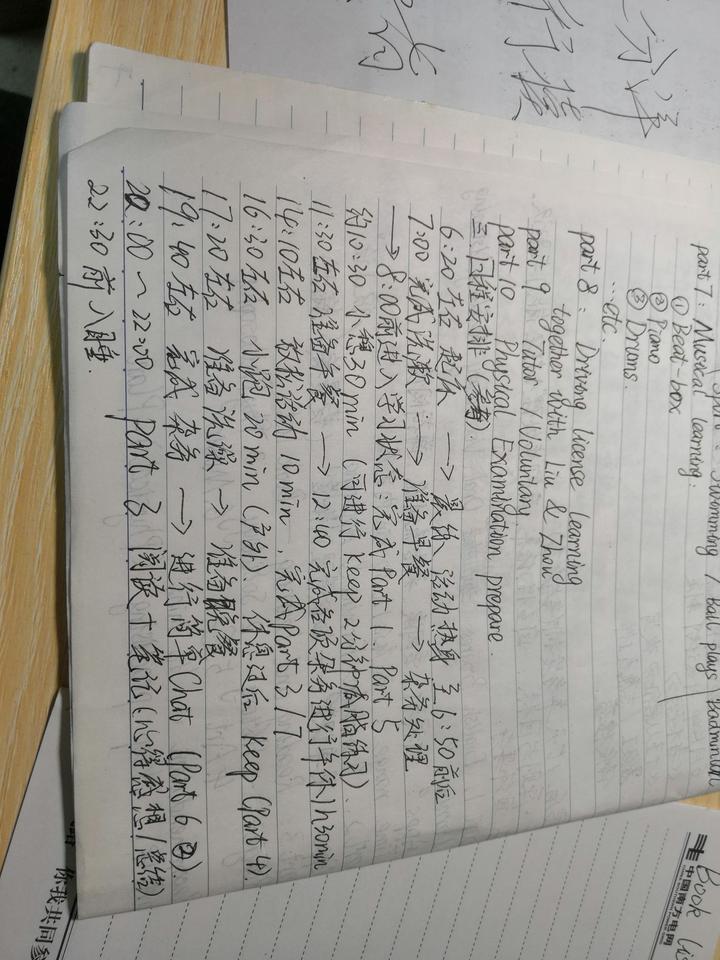 Swimming / Ball plays / Badmin
part 7: Musical learning:
① Beat-box
② Piano
③ Drums.
...etc.
part 8: Driving license learning
together with Liu & Zhou
part 9 Tutor / Voluntary
part 10 Physical Examination prepare.
三. 日程安排 (参考).
6:20左右 起床 → 晨练、活动热身 至6:50前后
7:00 完成洗漱 → 准备早餐 → 杂务处理
→ 8:00前进入学习状态: 完成 Part 1. Part 5
约10:30 小憩30min (可进行 keep 2分钟 练习).
11:30左右 准备午餐 → 12:40 完成各项杂务进行午休1h30min
14:10左右 放松活动 10min. 完成Part 3/7
16:30左右 小跑 20min (户外). 休息过后 keep (Part 4).
17:20左右 准备洗澡 → 准备晚餐
19:40左右 完成杂务 → 进行简单Chat (Part 6 ②)
20:00~22:00 Part 3 阅读+笔记(心得感想/总结)
22:30前入睡.
Book Li
中国南方电网
你我共同